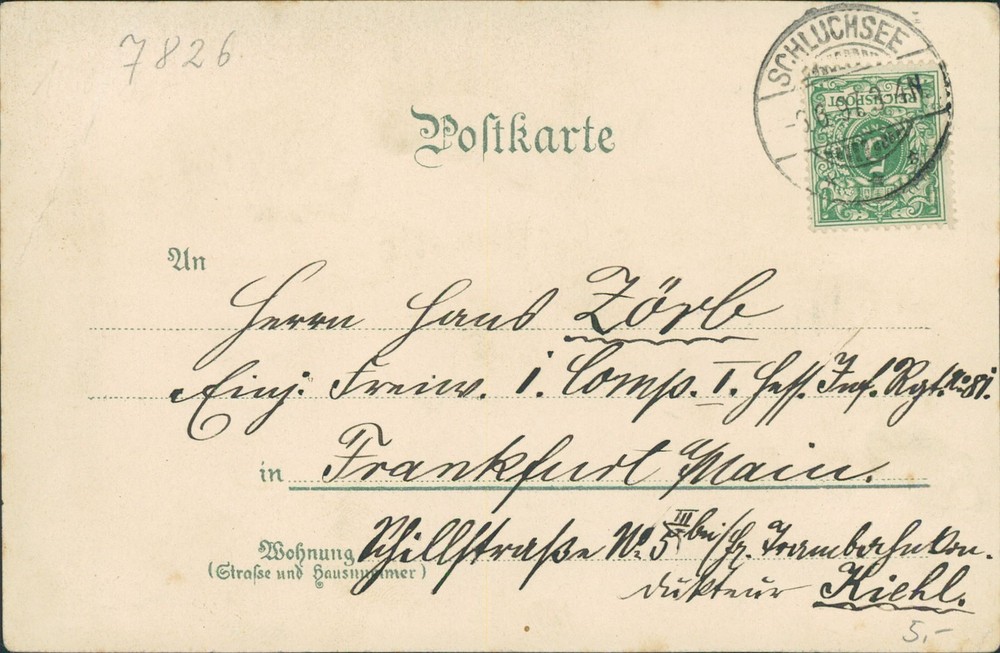 7826
SCHLUCHSEE
REICHSPOST
Postkarte
An
Herrn Hans Zörb
Einj. Freiw. 1. Comp. I. Hess. Inf. Rgt. No 81.
in Frankfurt Main.
Wohnung Schillstraße No 5 III bei Trambahnkon-
(Straße und Hausnummer)
dukteur Kiehl.
5,-